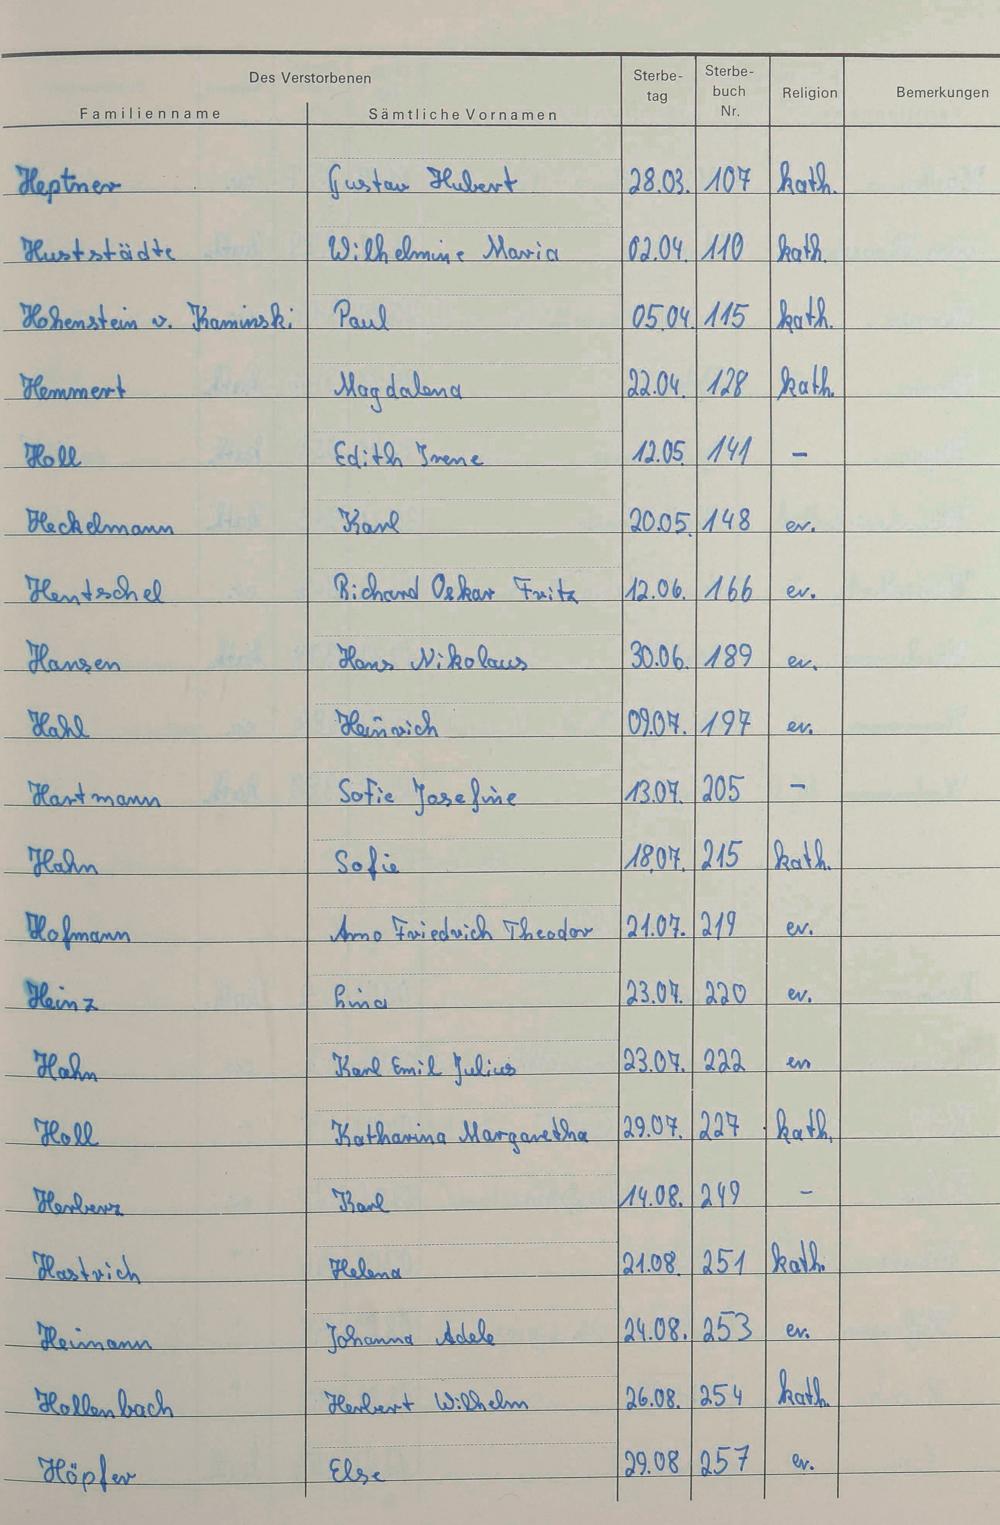 Des Verstorbenen
Familienname Sämtliche Vornamen Sterbe-tag Sterbe-buch Nr. Religion Bemerkungen
Heptner Gustav Hubert 28.03. 107 kath.
Huststädte Wilhelmine Maria 02.04. 110 kath.
Hohenstein v. Kaminski Paul 05.04. 115 kath.
Hemmert Magdalena 22.04. 128 kath.
Holl Edith Irene 12.05. 141 –
Heckelmann Karl 20.05. 148 ev.
Hentschel Richard Oskar Fritz 12.06. 166 ev.
Hansen Hans Nikolaus 30.06. 189 ev.
Hahl Heinrich 09.07. 197 ev.
Hartmann Sofie Josefine 13.07. 205 –
Hahn Sofie 18.07. 215 kath.
Hofmann Arno Friedrich Theodor 21.07. 219 ev.
Heinz Lina 23.07. 220 ev.
Hahn Karl Emil Julius 23.07. 222 ev
Holl Katharina Margaretha 29.07. 227 kath.
Herberz Karl 14.08. 249 –
Hastrich Helena 21.08. 251 kath.
Heimann Johanna Adele 24.08. 253 ev.
Hollenbach Herbert Wilhelm 26.08. 254 kath.
Höpfer Else 29.08 257 ev.